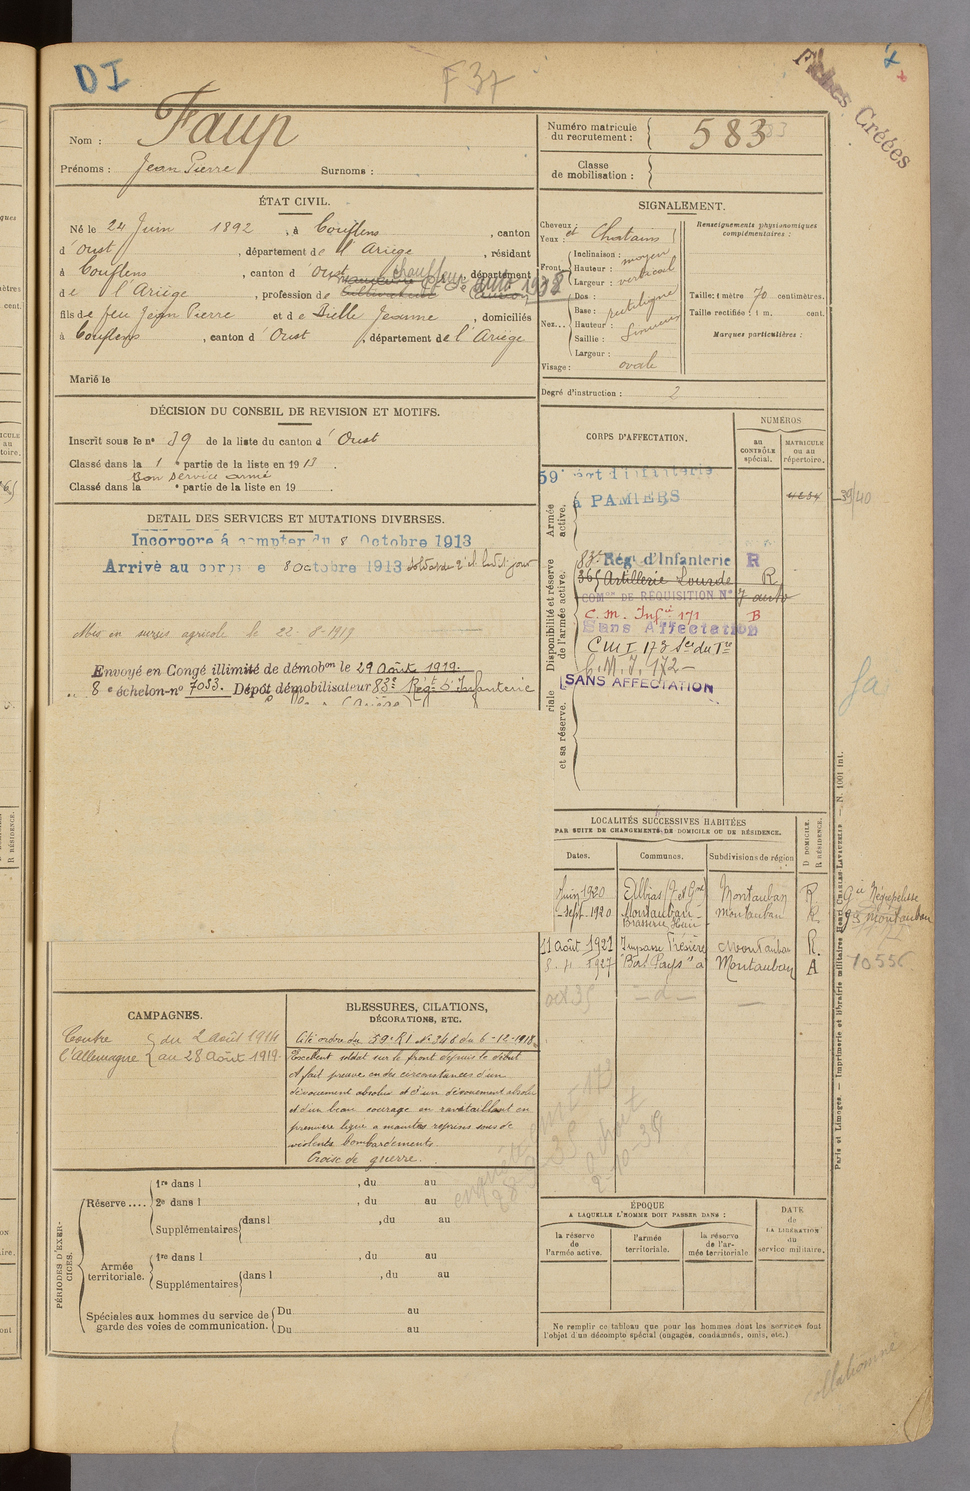 DI
F 37
Fiches Créées
Nom : Faup
Prénoms : Jean Pierre Surnoms :
Numéro matricule du recrutement : 583
Classe de mobilisation :
ÉTAT CIVIL.
Né le 24 Juin 1892, à Couflens, canton
d'Oust, département de l'Ariège, résidant
à Couflens, canton d'Oust, département
de l'Ariège, profession de Cultivateur chauffeur auto 1938
fils de feu Jean Pierre et de Dulle Jeanne, domiciliés
à Couflens, canton d'Oust, département de l'Ariège
Marié le
SIGNALEMENT.
Cheveux : et Chatains
Yeux :
Front Inclinaison : moyen
Hauteur : vertical
Largeur :
Nez... Dos :
Base : rectiligne
Hauteur : Sinueux
Saillie :
Largeur :
Visage : ovale
Renseignements physionomiques complémentaires :
Taille : 1 mètre 70 centimètres.
Taille rectifiée : 1 m. cent.
Marques particulières :
Degré d'instruction : 2
DÉCISION DU CONSEIL DE REVISION ET MOTIFS.
Inscrit sous le n° 39 de la liste du canton d'Oust
Classé dans la 1e partie de la liste en 1913.
Bon service armé
Classé dans la e partie de la liste en 19 .
DETAIL DES SERVICES ET MUTATIONS DIVERSES.
Incorporé à compter du 8 Octobre 1913
Arrivé au corps le 8 octobre 1913 soldat de 2e cl. ledit jour
Mis en sursis agricole le 22-8-1919
Envoyé en Congé illimité de démobon le 29 Août 1919.
8e échelon-n° 7053. Dépôt démobilisateur 83e Régt d'Infanterie
(Ariège)
CORPS D'AFFECTATION.
NUMÉROS
au CONTRÔLE spécial.
MATRICULE ou au répertoire.
Armée active.
59e Régt d'Infanterie
à PAMIERS
4634
39/40
Disponibilité et réserve de l'armée active.
83e Régt d'Infanterie R
Artillerie Lourde R
COMon DE RÉQUISITION N° 7 auto
C. m. Infie 171 B
Sans Affectation
CMI 173 Son du Tre
C.M.I. 172
SANS AFFECTATION
et sa réserve.
LOCALITÉS SUCCESSIVES HABITÉES
PAR SUITE DE CHANGEMENTS DE DOMICILE OU DE RÉSIDENCE.
Dates. Communes. Subdivisions de région D DOMICILE. R RÉSIDENCE.
Juin 1920 Albias (T et Gne) Montauban R Gie Nègrepelisse
Sept. 1920 Montauban Montauban R gie Montauban
Brasserie
11 août 1921 Impasse Montauban R.
1927 "Bas Pays" à Montauban A 10556
oct 35 - d - -
CAMPAGNES.
Contre du 2 Août 1914
l'Allemagne au 28 Août 1919.
BLESSURES, CITATIONS, DÉCORATIONS, ETC.
Cité ordre du 59e RI N° 346 du 6-12-1918
Excellent soldat sur le front depuis le début
A fait preuve en des circonstances d'un
dévouement absolu et d'un dévouement absolu
et d'un beau courage en ravitaillant en
première ligne a maintes reprises sous de
violents bombardements.
Croix de guerre.
PÉRIODES D'EXERCICES.
Réserve.... 1re dans l , du au
2e dans l , du au
Supplémentaires dans l , du au
du au
Armée territoriale. 1re dans l , du au
Supplémentaires dans l , du au
Spéciales aux hommes du service de garde des voies de communication. Du au
Du au
ÉPOQUE
A LAQUELLE L'HOMME DOIT PASSER DANS :
la réserve de l'armée active.
l'armée territoriale.
la réserve de l'armée territoriale
DATE de LA LIBÉRATION du service militaire.
Ne remplir ce tableau que pour les hommes dont les services font
l'objet d'un décompte spécial (engagés, condamnés, omis, etc.)
Paris et Limoges. — Imprimerie et librairie militaires Henri CHARLES-LAVAUZELLE — N. 1001 int.